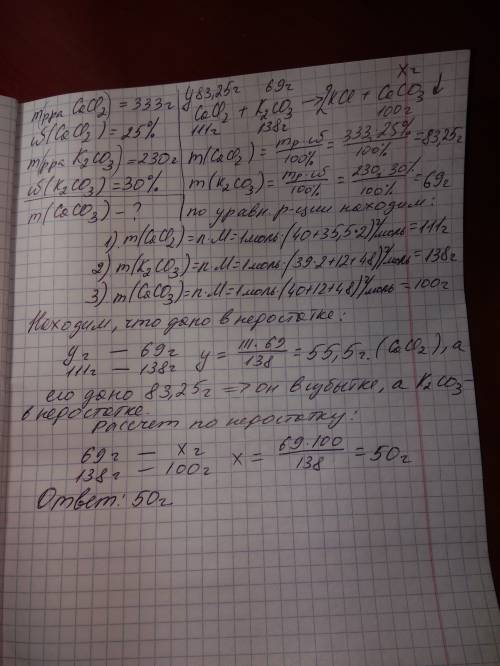 Xг
mрра CaCl2) = 333г
у 83,25г 69г
CaCl2 + K2CO3 → 2KCl + CaCO3 ↓
111г 138г 100г
ω(CaCl2) = 25%
mрра K2CO3) = 230г
ω(K2CO3) = 30%
m(CaCO3) - ?
m(CaCl2) = mр·ω/100% = 333·25%/100% = 83,25г
m(K2CO3) = mр·ω/100% = 230·30%/100% = 69г
по уравн. р-ции находим:
1) m(CaCl2) = n·M = 1моль·(40+35,5·2)г/моль = 111г
2) m(K2CO3) = n·M = 1моль·(39·2+12+48)г/моль = 138г
3) m(CaCO3) = n·M = 1моль·(40+12+48)г/моль = 100г
Находим, что дано в недостатке:
yг — 69г
111г — 138г
y = 111·69/138 = 55,5г (CaCl2), а
его дано 83,25г => он в избытке, а K2CO3 -
в недостатке.
Рассчет по недостатку:
69г — xг
138г — 100г
x = 69·100/138 = 50г
Ответ: 50г